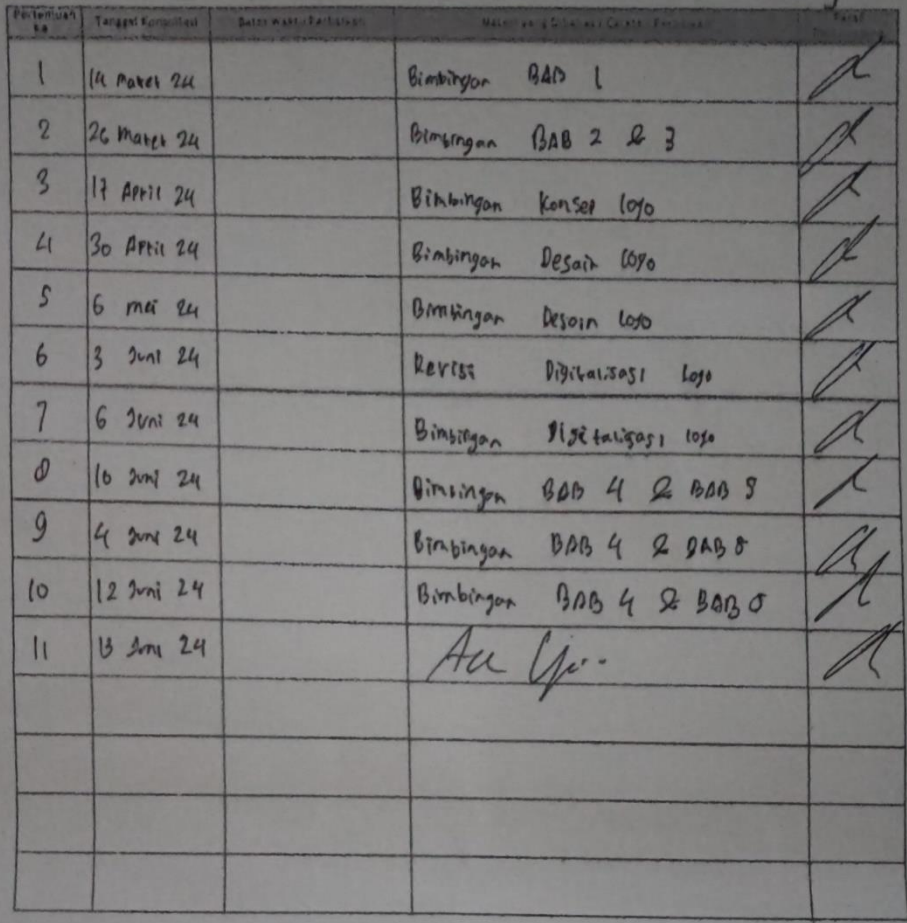 Pertemuan ke Tanggal Konsultasi Batas Waktu Perbaikan Paraf
1 14 Maret 24 Bimbingan BAB 1
2 26 Maret 24 Bimbingan BAB 2 & 3
3 17 April 24 Bimbingan Konsep logo
4 30 April 24 Bimbingan Desain logo
5 6 mei 24 Bimbingan Desain logo
6 3 Juni 24 Revisi Digitalisasi logo
7 6 Juni 24 Bimbingan Digitalisasi logo
8 10 Juni 24 Bimbingan BAB 4 & BAB 5
9 4 Juni 24 Bimbingan BAB 4 & BAB 5
10 12 Juni 24 Bimbingan BAB 4 & BAB 5
11 13 Juni 24 Acc